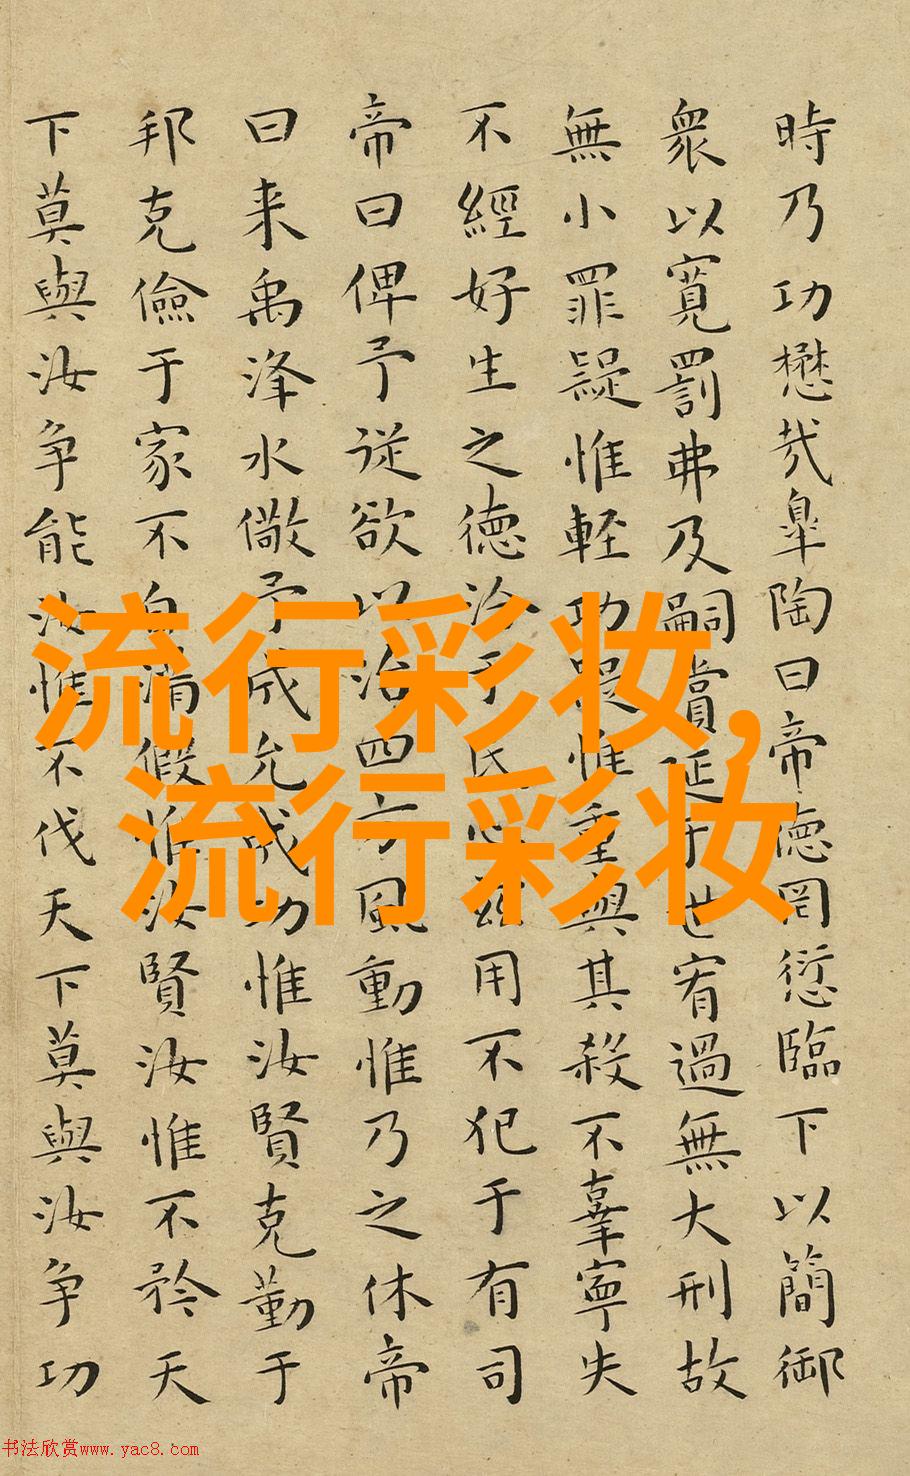 時乃功懋哉皐陶曰帝德罔愆臨下以簡御
衆以寬罰弗及嗣賞延于世宥過無大刑故
無小罪疑惟輕功疑惟重與其殺不辜寧失
不經好生之德洽于民心茲用不犯于有司
帝曰俾予従欲以治四方風動惟乃之休帝
曰来禹洚水儆予成允成功惟汝賢克勤于
邦克儉于家不自滿假惟汝賢汝惟不矜天
下莫與汝争能汝惟不伐天下莫與汝争功
流行彩妆,
流行彩妆
书法欣赏www.yac8.com